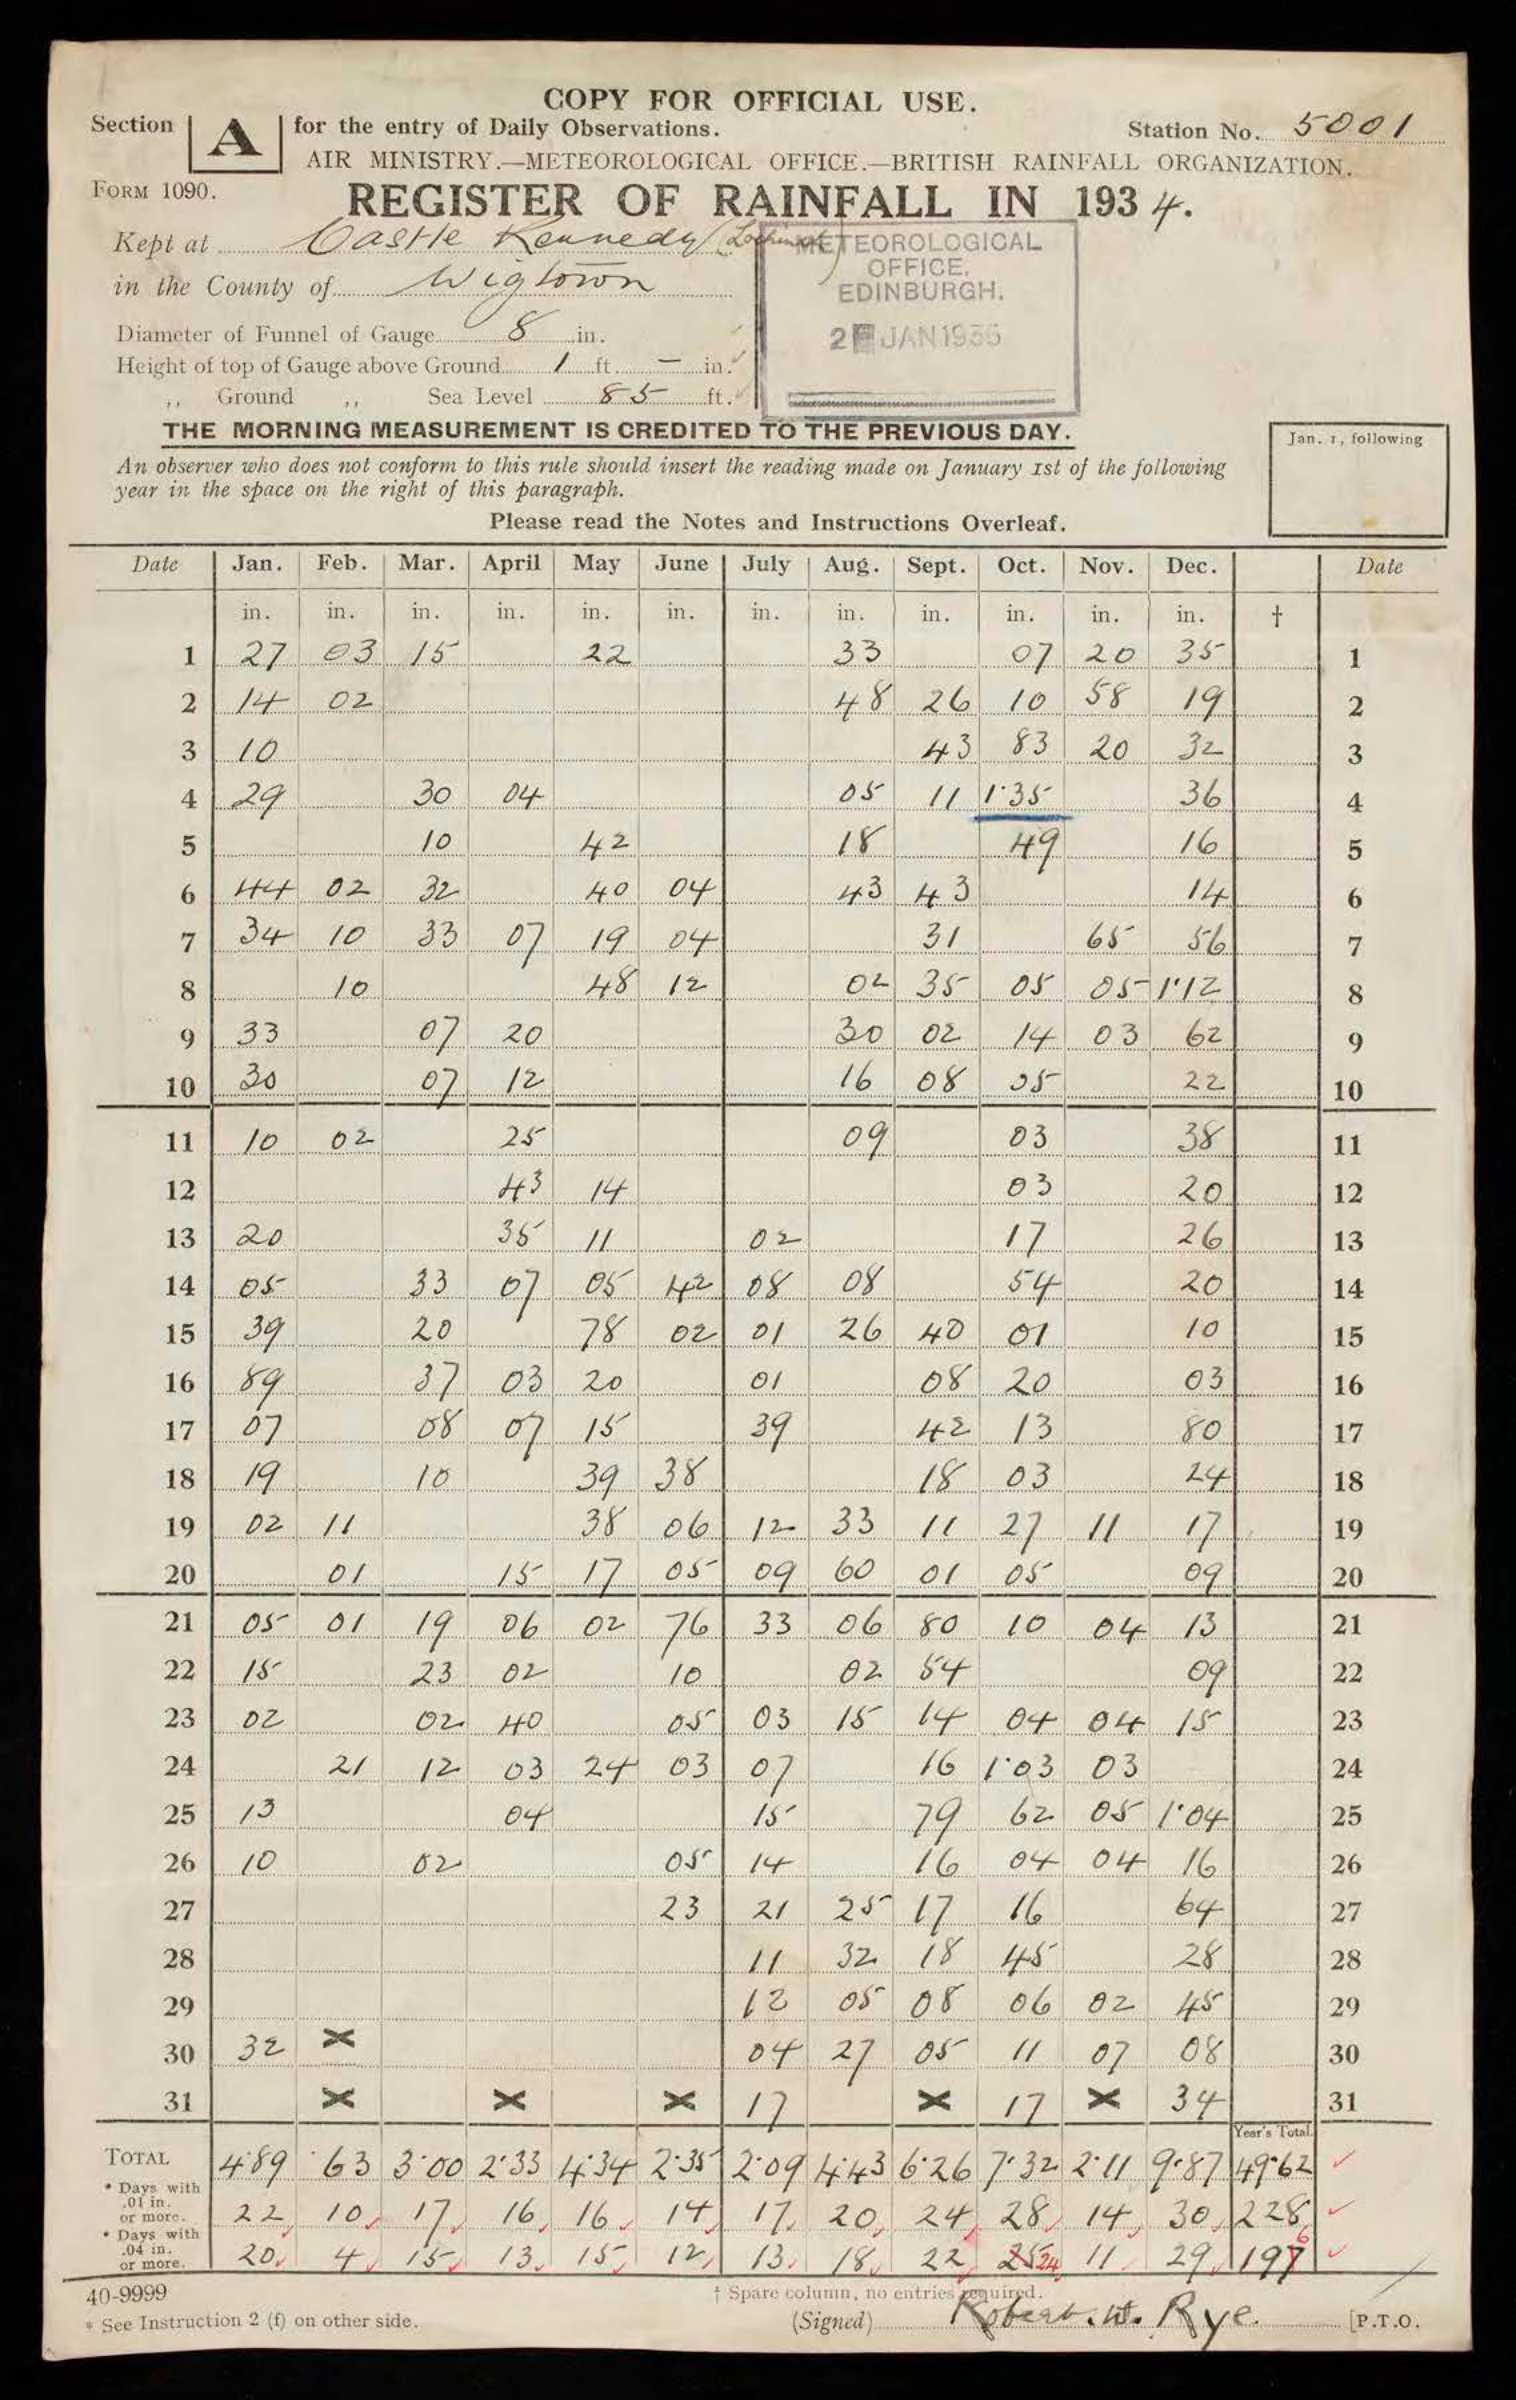 COPY FOR OFFICIAL USE.
Section A for the entry of Daily Observations. Station No. 5001
AIR MINISTRY.—METEOROLOGICAL OFFICE.—BRITISH RAINFALL ORGANIZATION.
FORM 1090. REGISTER OF RAINFALL IN 1934.
Kept at Castle Kennedy (Lochinch)
in the County of Wigtown
METEOROLOGICAL
OFFICE.
EDINBURGH.
JAN 1935
Diameter of Funnel of Gauge 8 in.
Height of top of Gauge above Ground 1 ft. — in.
,, Ground ,, Sea Level 85 ft.
THE MORNING MEASUREMENT IS CREDITED TO THE PREVIOUS DAY.
An observer who does not conform to this rule should insert the reading made on January 1st of the following
year in the space on the right of this paragraph.
Jan. 1, following
Please read the Notes and Instructions Overleaf.
Date Jan. Feb. Mar. April May June July Aug. Sept. Oct. Nov. Dec. Date
in. in. in. in. in. in. in. in. in. in. in. in. †
1 27 03 15 22 33 07 20 35 1
2 14 02 48 26 10 58 19 2
3 10 43 83 20 32 3
4 29 30 04 05 11 1·35 36 4
5 10 42 18 49 16 5
6 44 02 32 40 04 43 43 14 6
7 34 10 33 07 19 04 31 65 56 7
8 10 48 12 02 35 05 05 1·12 8
9 33 07 20 30 02 14 03 62 9
10 30 07 12 16 08 05 22 10
11 10 02 25 09 03 38 11
12 43 14 03 20 12
13 20 35 11 02 17 26 13
14 05 33 07 05 42 08 08 54 20 14
15 39 20 78 02 01 26 40 01 10 15
16 89 37 03 20 01 08 20 03 16
17 07 08 07 15 39 42 13 80 17
18 19 10 39 38 18 03 24 18
19 02 11 38 06 12 33 11 27 11 17 19
20 01 15 17 05 09 60 01 05 09 20
21 05 01 19 06 02 76 33 06 80 10 04 13 21
22 15 23 02 10 02 54 09 22
23 02 02 40 05 03 15 14 04 04 15 23
24 21 12 03 24 03 07 16 1·03 03 24
25 13 04 15 79 62 05 1·04 25
26 10 02 05 14 16 04 04 16 26
27 23 21 25 17 16 64 27
28 11 32 18 45 28 28
29 12 05 08 06 02 45 29
30 32 × 04 27 05 11 07 08 30
31 × × × 17 × 17 × 34 31
Year's Total.
TOTAL 4·89 ·63 3·00 2·33 4·34 2·35 2·09 4·43 6·26 7·32 2·11 9·87 49·62
* Days with
.01 in.
or more. 22 10 17 16 16 14 17 20 24 28 14 30 228
* Days with
.04 in.
or more. 20 4 15 13 15 12 13 18 22 25 24 11 29 197 6
40-9999 † Spare column, no entries required.
* See Instruction 2 (f) on other side. (Signed) Robert. W. Rye. [P.T.O.